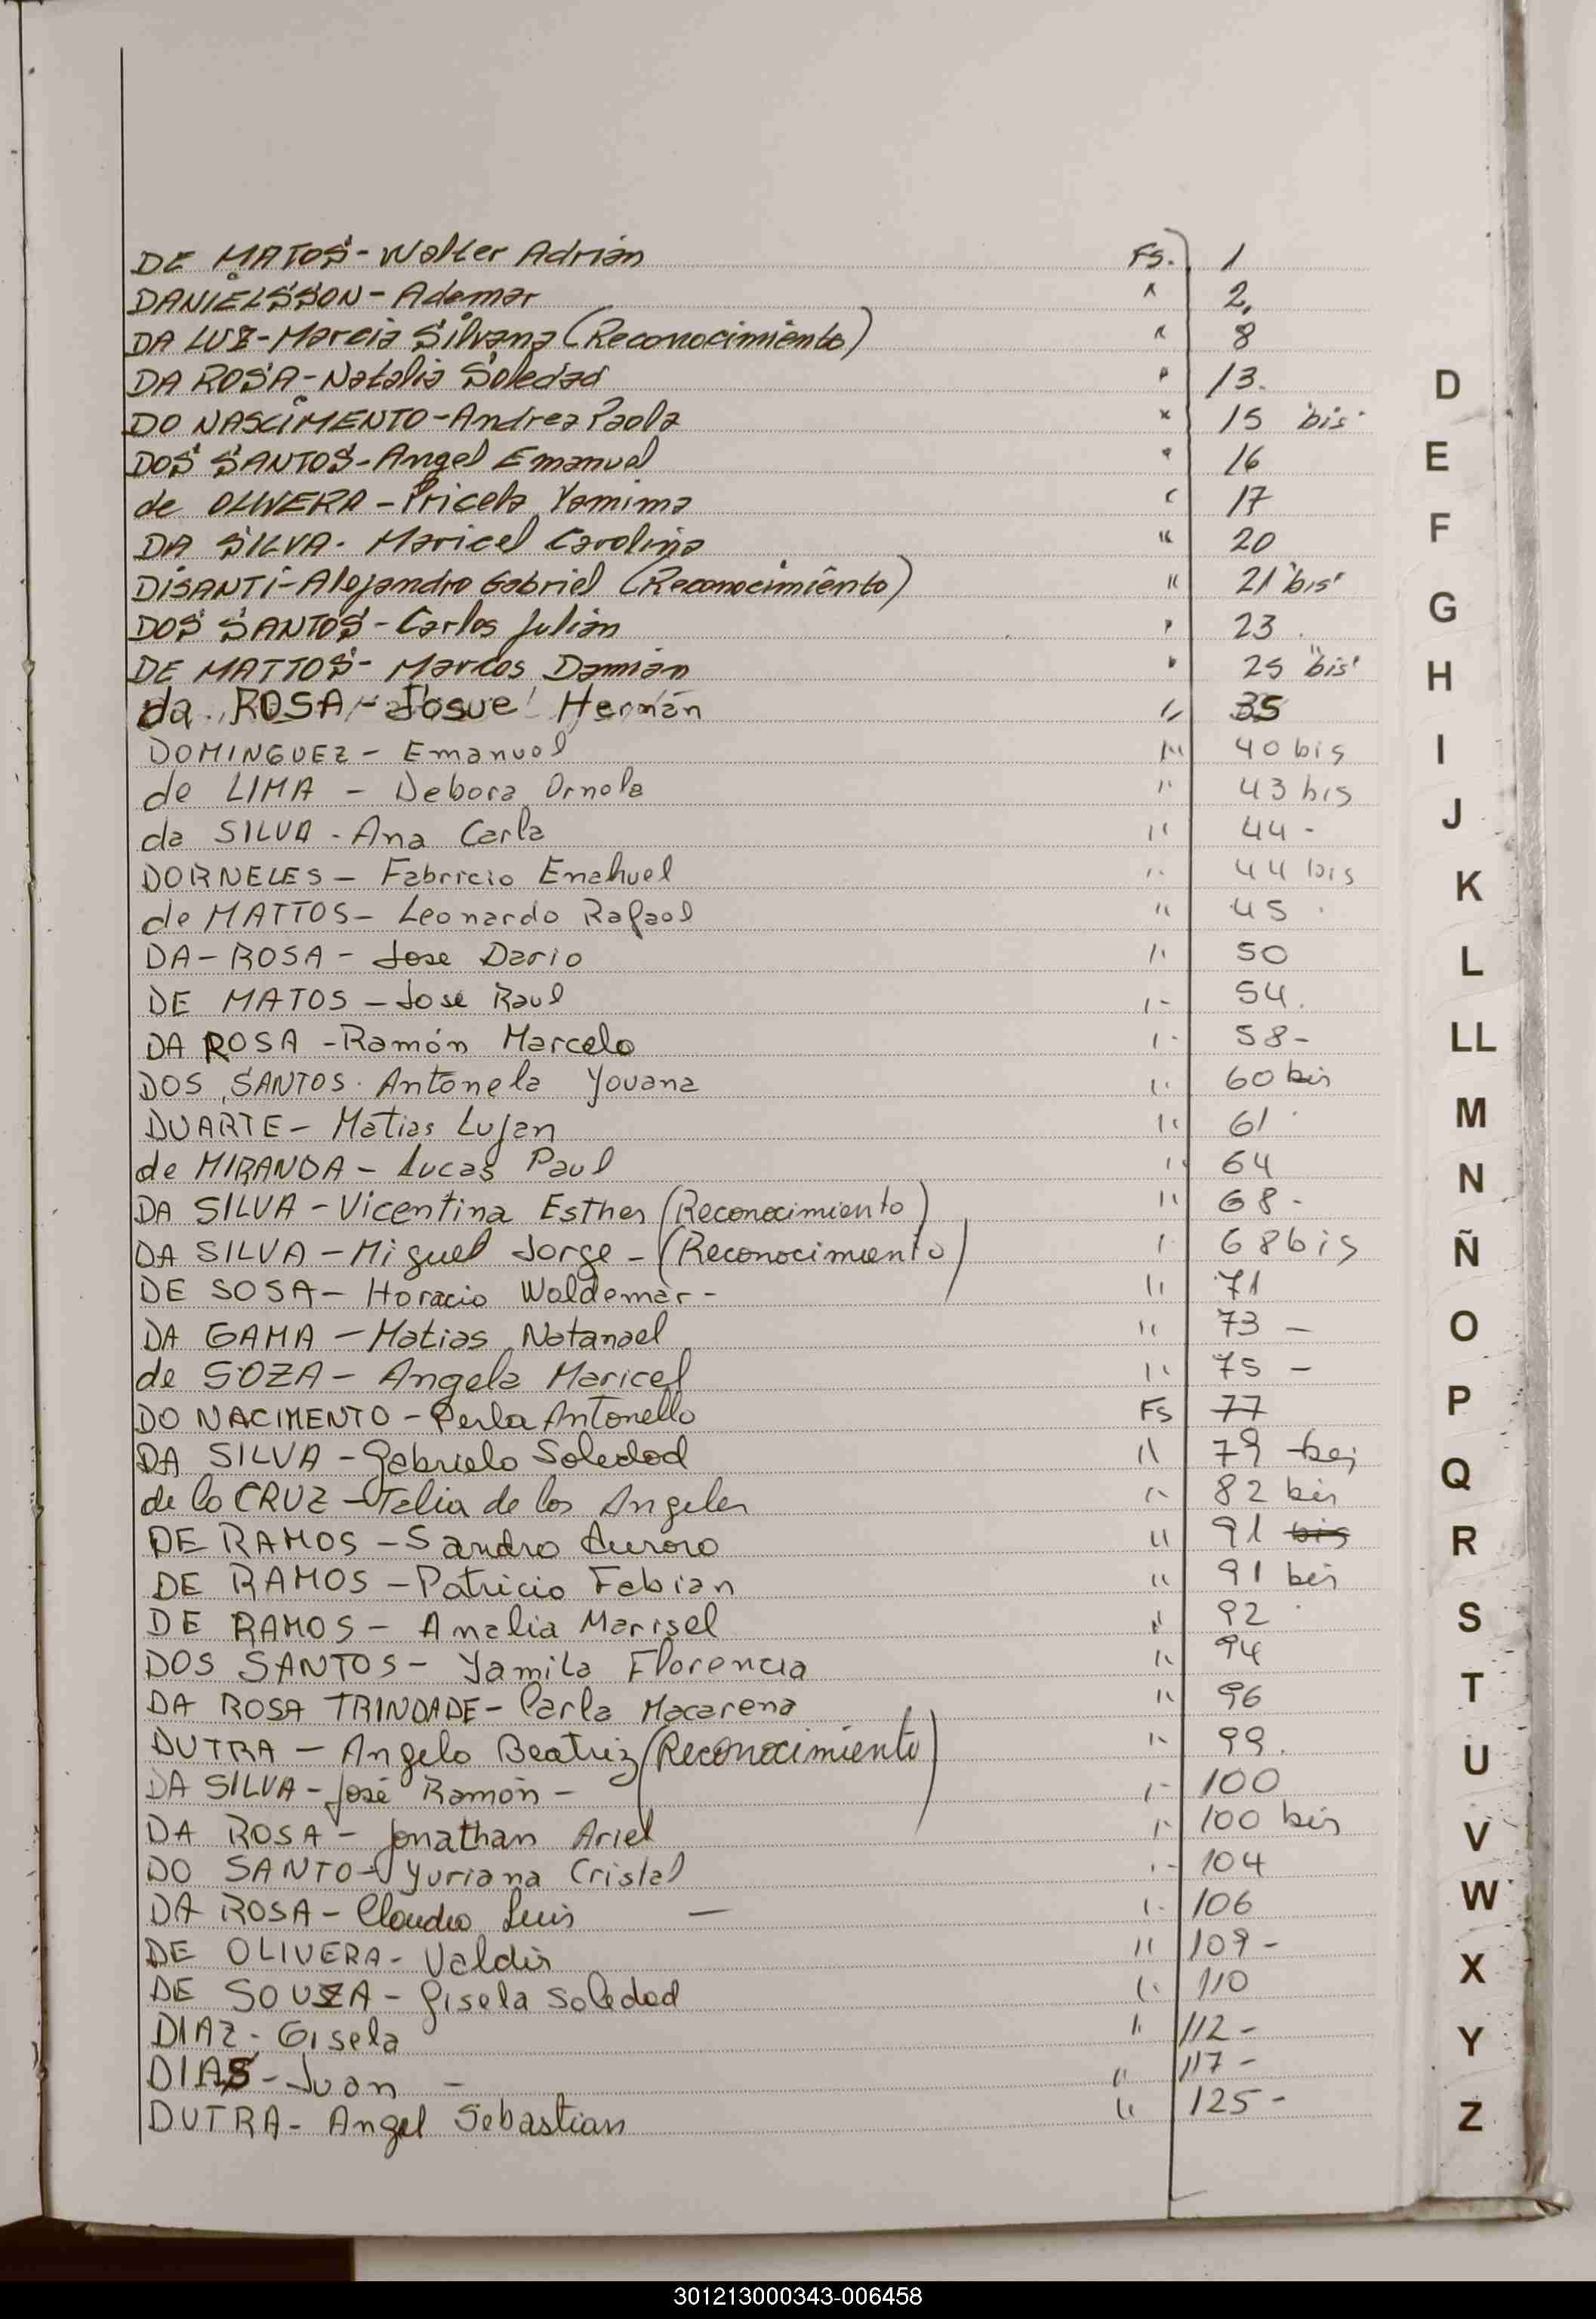 DE MATOS - Walter Adrián Fs. 1
DANIELSSON - Ademar " 2.
DA LUZ - Marcia Silvana (Reconocimiento) " 8
DA ROSA - Natalia Soledad " 13.
DO NASCIMENTO - Andrea Paola " 15 "bis"
DOS SANTOS - Angel Emanuel " 16
de OLIVERA - Pricela Yamima " 17
DA SILVA - Maricel Carolina " 20
DISANTI - Alejandro Gabriel (Reconocimiento) " 21 "bis"
DOS SANTOS - Carlos Julián " 23
DE MATTOS - Marcos Damián " 25 "bis"
da ROSA - Josue Hernán " 35
DOMINGUEZ - Emanuel " 40 bis
de LIMA - Debora Ornela " 43 bis
da SILVA - Ana Carla " 44 -
DORNELES - Fabricio Enahuel " 44 bis
de MATTOS - Leonardo Rafael " 45
DA - ROSA - Jose Dario " 50
DE MATOS - José Raul " 54.
DA ROSA - Ramón Marcelo " 58 -
DOS SANTOS - Antonela Yovana " 60 bis
DUARTE - Matias Lujan " 61
de MIRANDA - Lucas Paul " 64
DA SILVA - Vicentina Esther (Reconocimiento) " 68 -
DA SILVA - Miguel Jorge - (Reconocimiento) " 68 bis
DE SOSA - Horacio Waldemar - " 71
DA GAMA - Matias Natanael " 73 -
de SOZA - Angela Maricel " 75 -
DO NACIMENTO - Perla Antonella Fs 77
DA SILVA - Gabriela Soledad " 79 bis
de la CRUZ - Talia de los Angeles " 82 bis
DE RAMOS - Sandra Aurora " 91 bis
DE RAMOS - Patricio Fabian " 91 bis
DE RAMOS - Analia Marisel " 92
DOS SANTOS - Yamila Florencia " 94
DA ROSA TRINDADE - Carla Macarena " 96
DUTRA - Angela Beatriz (Reconocimiento) " 99.
DA SILVA - José Ramón - " 100
DA ROSA - Jonathan Ariel " 100 bis
DO SANTO - Yuriana Cristal " 104
DA ROSA - Claudio Luis — " 106
DE OLIVERA - Valdir " 109 -
DE SOUZA - Gisela Soledad " 110
DIAZ - Gisela " 112 -
DIAS - Juan - " 117 -
DUTRA - Angel Sebastian " 125 -
D
E
F
G
H
I
J
K
L
LL
M
N
Ñ
O
P
Q
R
S
T
U
V
W
X
Y
Z
301213000343-006458